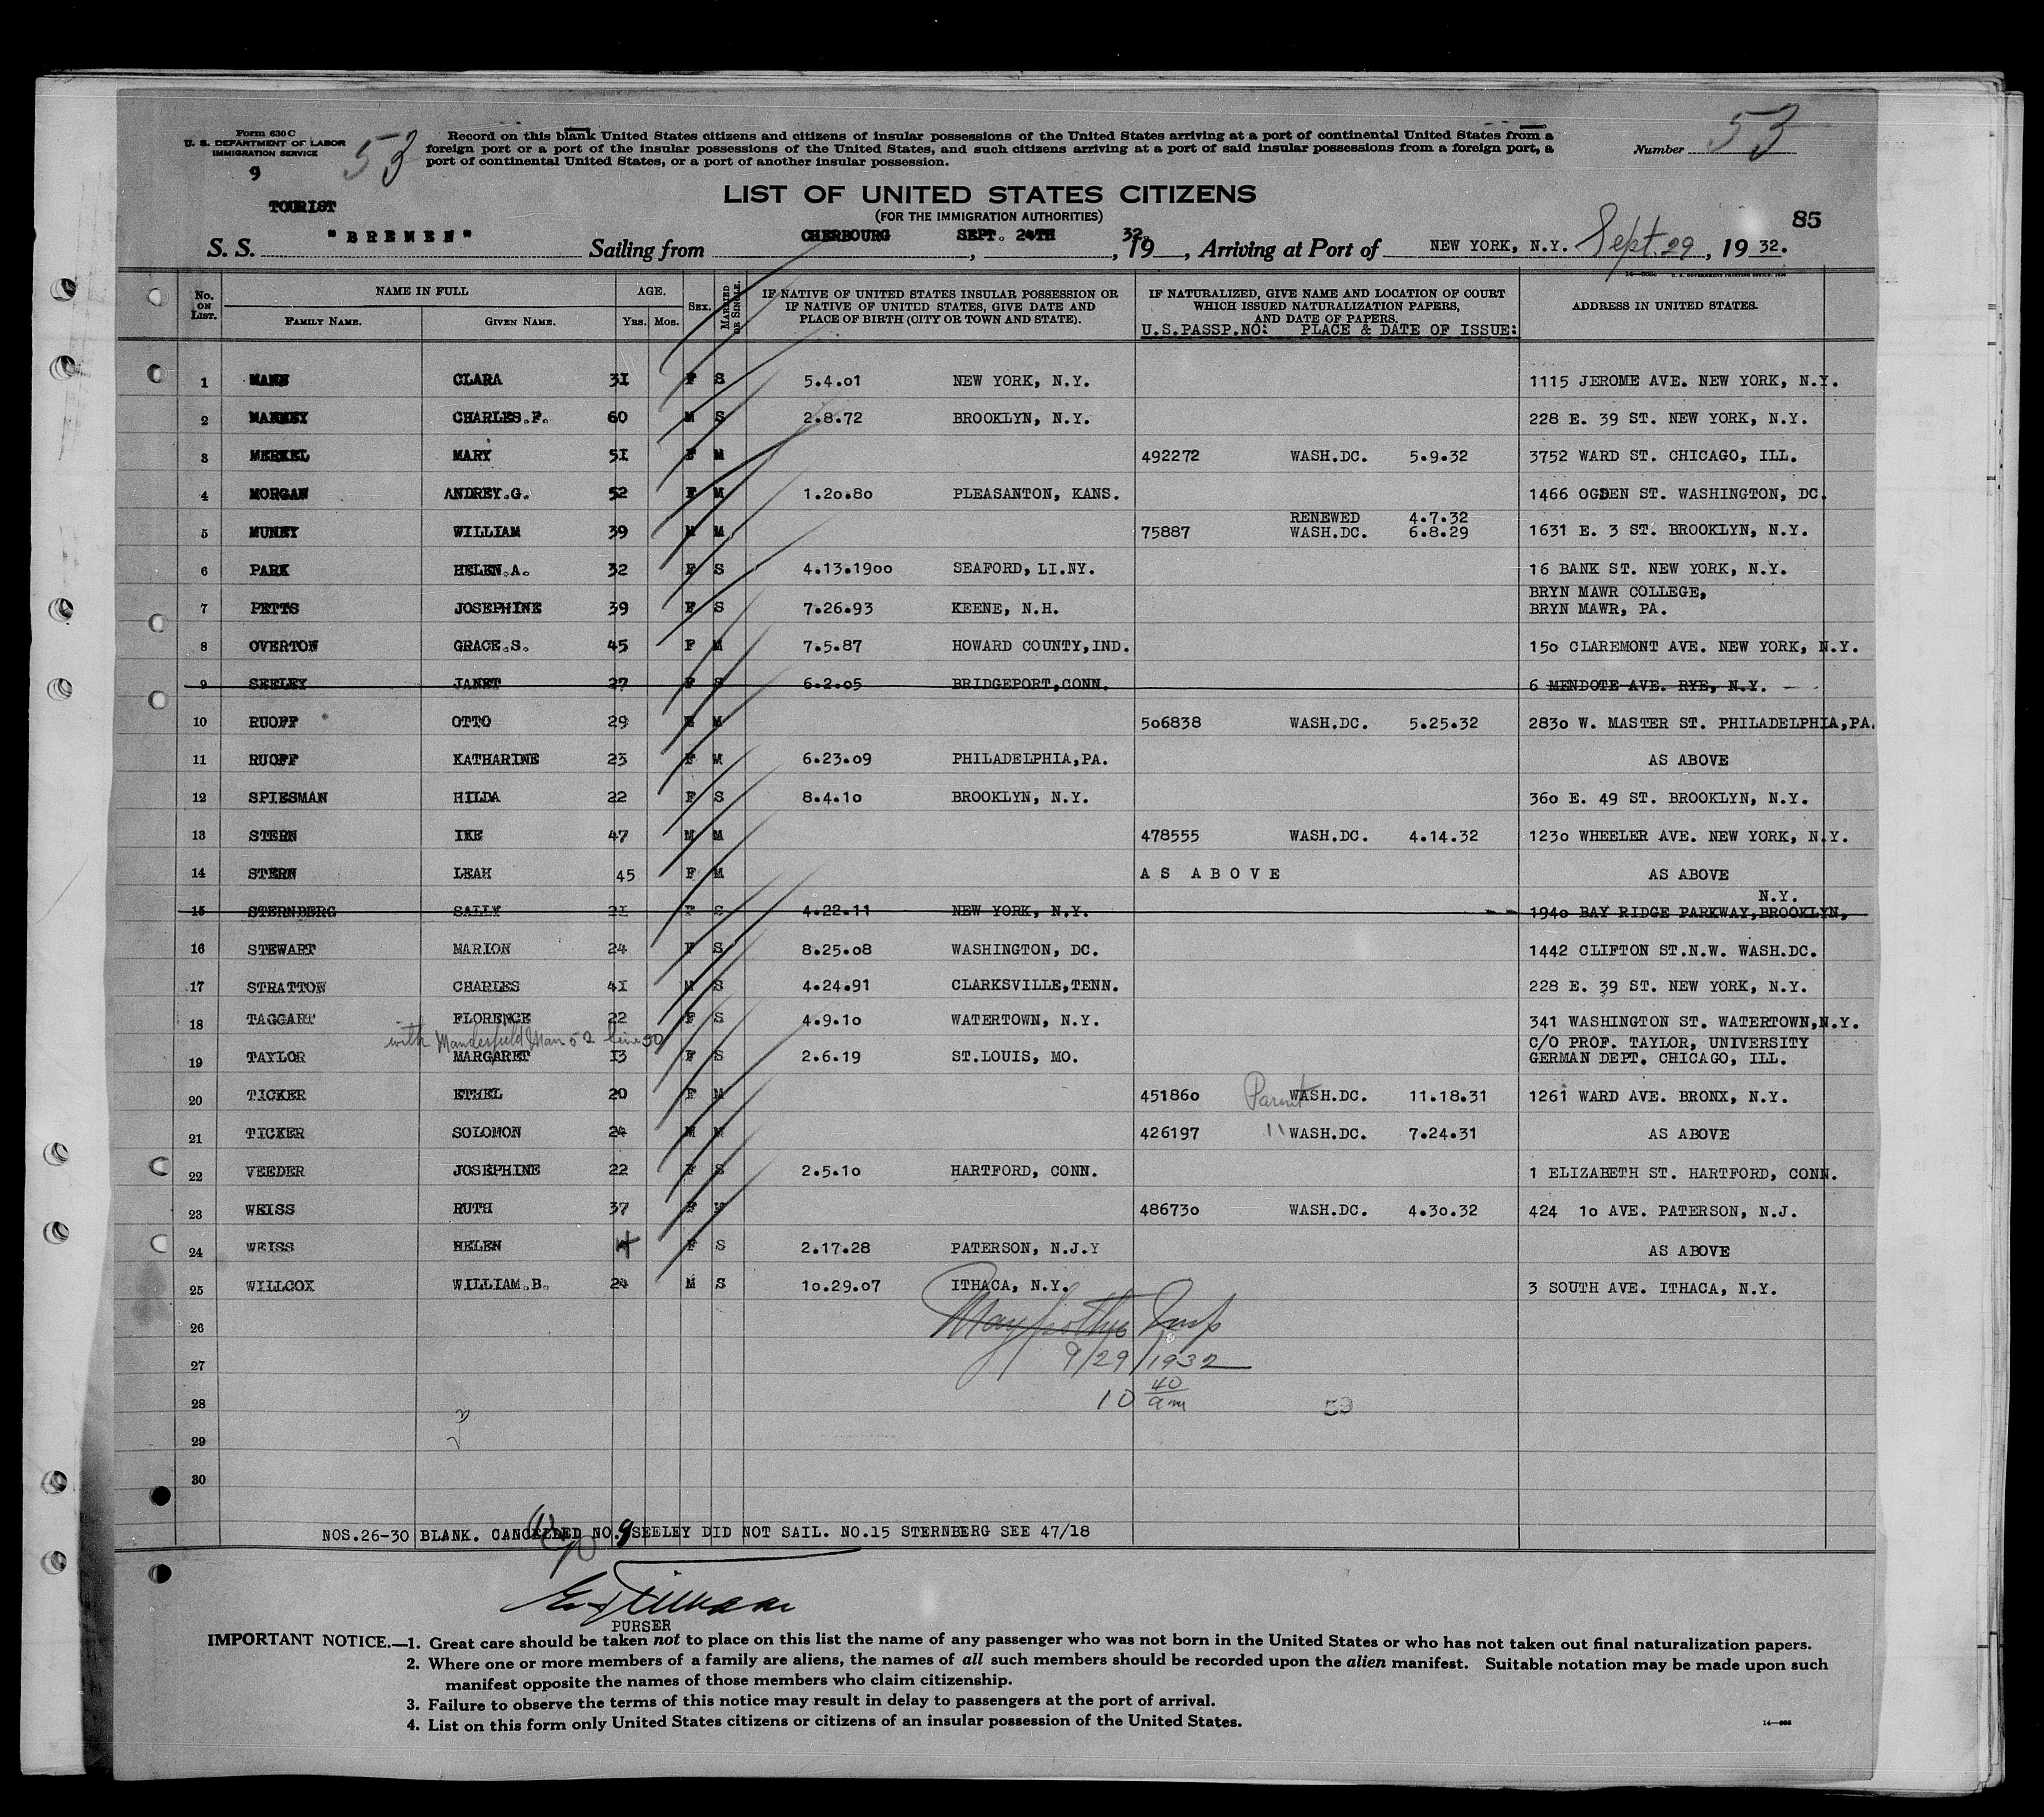 Form 630 C
U. S. DEPARTMENT OF LABOR
IMMIGRATION SERVICE
9
53
Record on this blank United States citizens and citizens of insular possessions of the United States arriving at a port of continental United States from a
foreign port or a port of the insular possessions of the United States, and such citizens arriving at a port of said insular possessions from a foreign port, a
port of continental United States, or a port of another insular possession.
Number 53
LIST OF UNITED STATES CITIZENS
(FOR THE IMMIGRATION AUTHORITIES)
TOURIST
85
S. S. "BREMEN" Sailing from CHERBOURG SEPT. 24TH, 1932, Arriving at Port of NEW YORK, N.Y. Sept. 29, 1932.
No. ON LIST. NAME IN FULL FAMILY NAME. GIVEN NAME. AGE. YRS. MOS. SEX. MARRIED OR SINGLE. IF NATIVE OF UNITED STATES INSULAR POSSESSION OR IF NATIVE OF UNITED STATES, GIVE DATE AND PLACE OF BIRTH (CITY OR TOWN AND STATE). IF NATURALIZED, GIVE NAME AND LOCATION OF COURT WHICH ISSUED NATURALIZATION PAPERS, AND DATE OF PAPERS. ADDRESS IN UNITED STATES.
U.S.PASSP.NO: PLACE & DATE OF ISSUE:
1 MANN CLARA 31 F S 5.4.01 NEW YORK, N.Y. 1115 JEROME AVE. NEW YORK, N.Y.
2 MANNEY CHARLES.F. 60 M S 2.8.72 BROOKLYN, N.Y. 228 E. 39 ST. NEW YORK, N.Y.
3 MERKEL MARY 51 F M 492272 WASH.DC. 5.9.32 3752 WARD ST. CHICAGO, ILL.
4 MORGAN ANDREY.G. 52 F M 1.20.80 PLEASANTON, KANS. 1466 OGDEN ST. WASHINGTON, DC.
RENEWED 4.7.32
5 MUNEY WILLIAM 39 M M 75887 WASH.DC. 6.8.29 1631 E. 3 ST. BROOKLYN, N.Y.
6 PARK HELEN.A. 32 F S 4.13.1900 SEAFORD, LI.NY. 16 BANK ST. NEW YORK, N.Y.
BRYN MAWR COLLEGE,
7 PETTS JOSEPHINE 39 F S 7.26.93 KEENE, N.H. BRYN MAWR, PA.
8 OVERTON GRACE.S. 45 F M 7.5.87 HOWARD COUNTY,IND. 150 CLAREMONT AVE. NEW YORK, N.Y.
9 SEELEY JANET 27 F S 6.2.05 BRIDGEPORT,CONN. 6 MENDOTE AVE. RYE, N.Y.
10 RUOFF OTTO 29 M M 506838 WASH.DC. 5.25.32 2830 W. MASTER ST. PHILADELPHIA,PA.
11 RUOFF KATHARINE 23 F M 6.23.09 PHILADELPHIA,PA. AS ABOVE
12 SPIESMAN HILDA 22 F S 8.4.10 BROOKLYN, N.Y. 360 E. 49 ST. BROOKLYN, N.Y.
13 STERN IKE 47 M M 478555 WASH.DC. 4.14.32 1230 WHEELER AVE. NEW YORK, N.Y.
14 STERN LEAH 45 F M AS ABOVE AS ABOVE
N.Y.
15 STERNBERG SALLY 21 F S 4.22.11 NEW YORK, N.Y. 1940 BAY RIDGE PARKWAY,BROOKLYN,
16 STEWART MARION 24 F S 8.25.08 WASHINGTON, DC. 1442 CLIFTON ST.N.W. WASH.DC.
17 STRATTON CHARLES 41 M S 4.24.91 CLARKSVILLE,TENN. 228 E. 39 ST. NEW YORK, N.Y.
18 TAGGART FLORENCE 22 F S 4.9.10 WATERTOWN, N.Y. 341 WASHINGTON ST. WATERTOWN,N.Y.
with Manderfield Man 52 line 30
C/O PROF. TAYLOR, UNIVERSITY
19 TAYLOR MARGARET 13 F S 2.6.19 ST.LOUIS, MO. GERMAN DEPT. CHICAGO, ILL.
20 TICKER ETHEL 20 F M 451860 Parent WASH.DC. 11.18.31 1261 WARD AVE. BRONX, N.Y.
21 TICKER SOLOMON 24 M M 426197 " WASH.DC. 7.24.31 AS ABOVE
22 VEEDER JOSEPHINE 22 F S 2.5.10 HARTFORD, CONN. 1 ELIZABETH ST. HARTFORD, CONN.
23 WEISS RUTH 37 F M 486730 WASH.DC. 4.30.32 424 10 AVE. PATERSON, N.J.
24 WEISS HELEN 4 F S 2.17.28 PATERSON, N.J.Y AS ABOVE
25 WILLCOX WILLIAM.B. 24 M S 10.29.07 ITHACA, N.Y. 3 SOUTH AVE. ITHACA, N.Y.
26 Insp
27 9/29/1932
28 10 40 am 59
29
30
NOS.26-30 BLANK. CANCELLED NO.9 SEELEY DID NOT SAIL. NO.15 STERNBERG SEE 47/18
PURSER
IMPORTANT NOTICE.—1. Great care should be taken not to place on this list the name of any passenger who was not born in the United States or who has not taken out final naturalization papers.
2. Where one or more members of a family are aliens, the names of all such members should be recorded upon the alien manifest. Suitable notation may be made upon such
manifest opposite the names of those members who claim citizenship.
3. Failure to observe the terms of this notice may result in delay to passengers at the port of arrival.
4. List on this form only United States citizens or citizens of an insular possession of the United States.